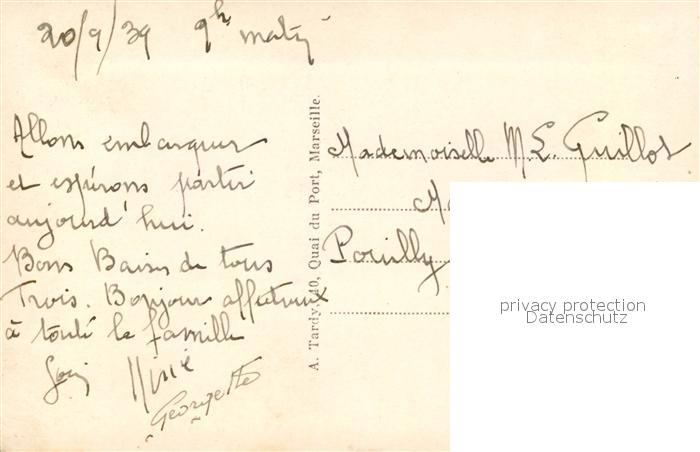 20/9/39 9h matin
Allons embarquer
et espérons partir
aujourd'hui.
Bons Baisers de tous
Trois. Bonjour affectueux
à toute la famille
Georgette
A. Tardy, 40, Quai du Port, Marseille.
Mademoiselle M. L. Guillot
Pouilly
privacy protection
Datenschutz